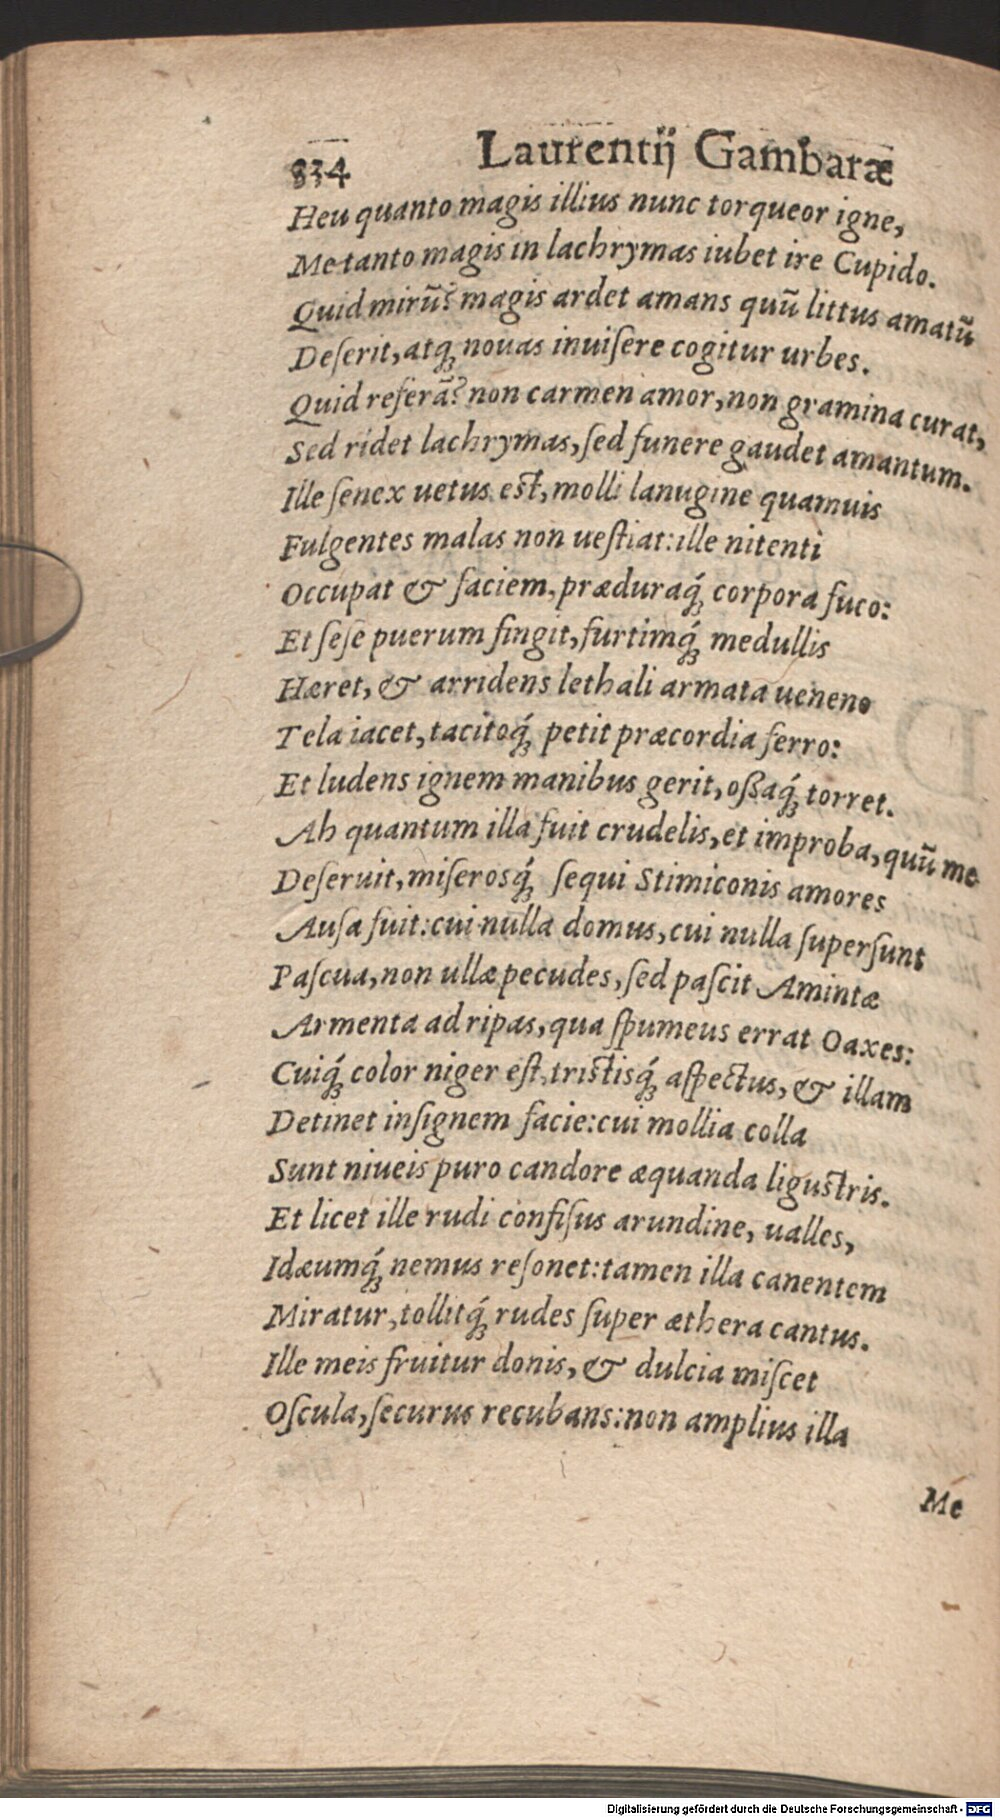 834 Laurentij Gambaræ
Heu quanto magis illius nunc torqueor igne,
Me tanto magis in lachrymas iubet ire Cupido.
Quid mirũ? magis ardet amans quũ littus amatũ
Deſerit, atq; nouas inuiſere cogitur urbes.
Quid referã? non carmen amor, non gramina curat,
Sed ridet lachrymas, ſed funere gaudet amantum.
Ille ſenex uetus eſt, molli lanugine quamuis
Fulgentes malas non ueſtiat: ille nitenti
Occupat & faciem, præduraq́; corpora fuco:
Et ſeſe puerum fingit, furtimq́; medullis
Hæret, & arridens lethali armata ueneno
Tela iacet, tacitoq́; petit præcordia ferro:
Et ludens ignem manibus gerit, oßaq́; torret.
Ah quantum illa fuit crudelis, et improba, quũ me
Deſeruit, miſerosq́; ſequi Stimiconis amores
Auſa fuit: cui nulla domus, cui nulla ſuperſunt
Paſcua, non ullæ pecudes, ſed paſcit Amintæ
Armenta ad ripas, qua ſpumeus errat Oaxes:
Cuiq́; color niger eſt, triſtisq́; aſpectus, & illam
Detinet inſignem facie: cui mollia colla
Sunt niueis puro candore æquanda liguſtris.
Et licet ille rudi confiſus arundine, ualles,
Idæumq́; nemus reſonet: tamen illa canentem
Miratur, tollitq́; rudes ſuper æthera cantus.
Ille meis fruitur donis, & dulcia miſcet
Oſcula, ſecurus recubans: non amplius illa
Me
Digitalisierung gefördert durch die Deutsche Forschungsgemeinschaft - DFG